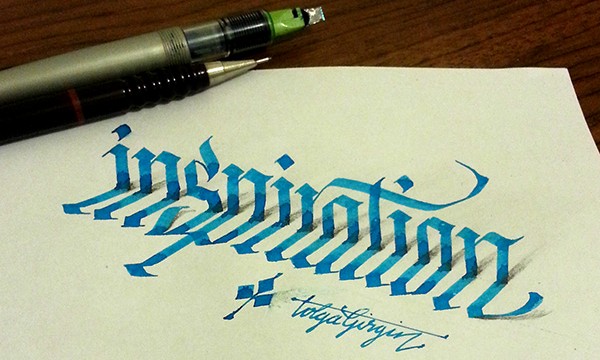 inspiration
tolga Girgin